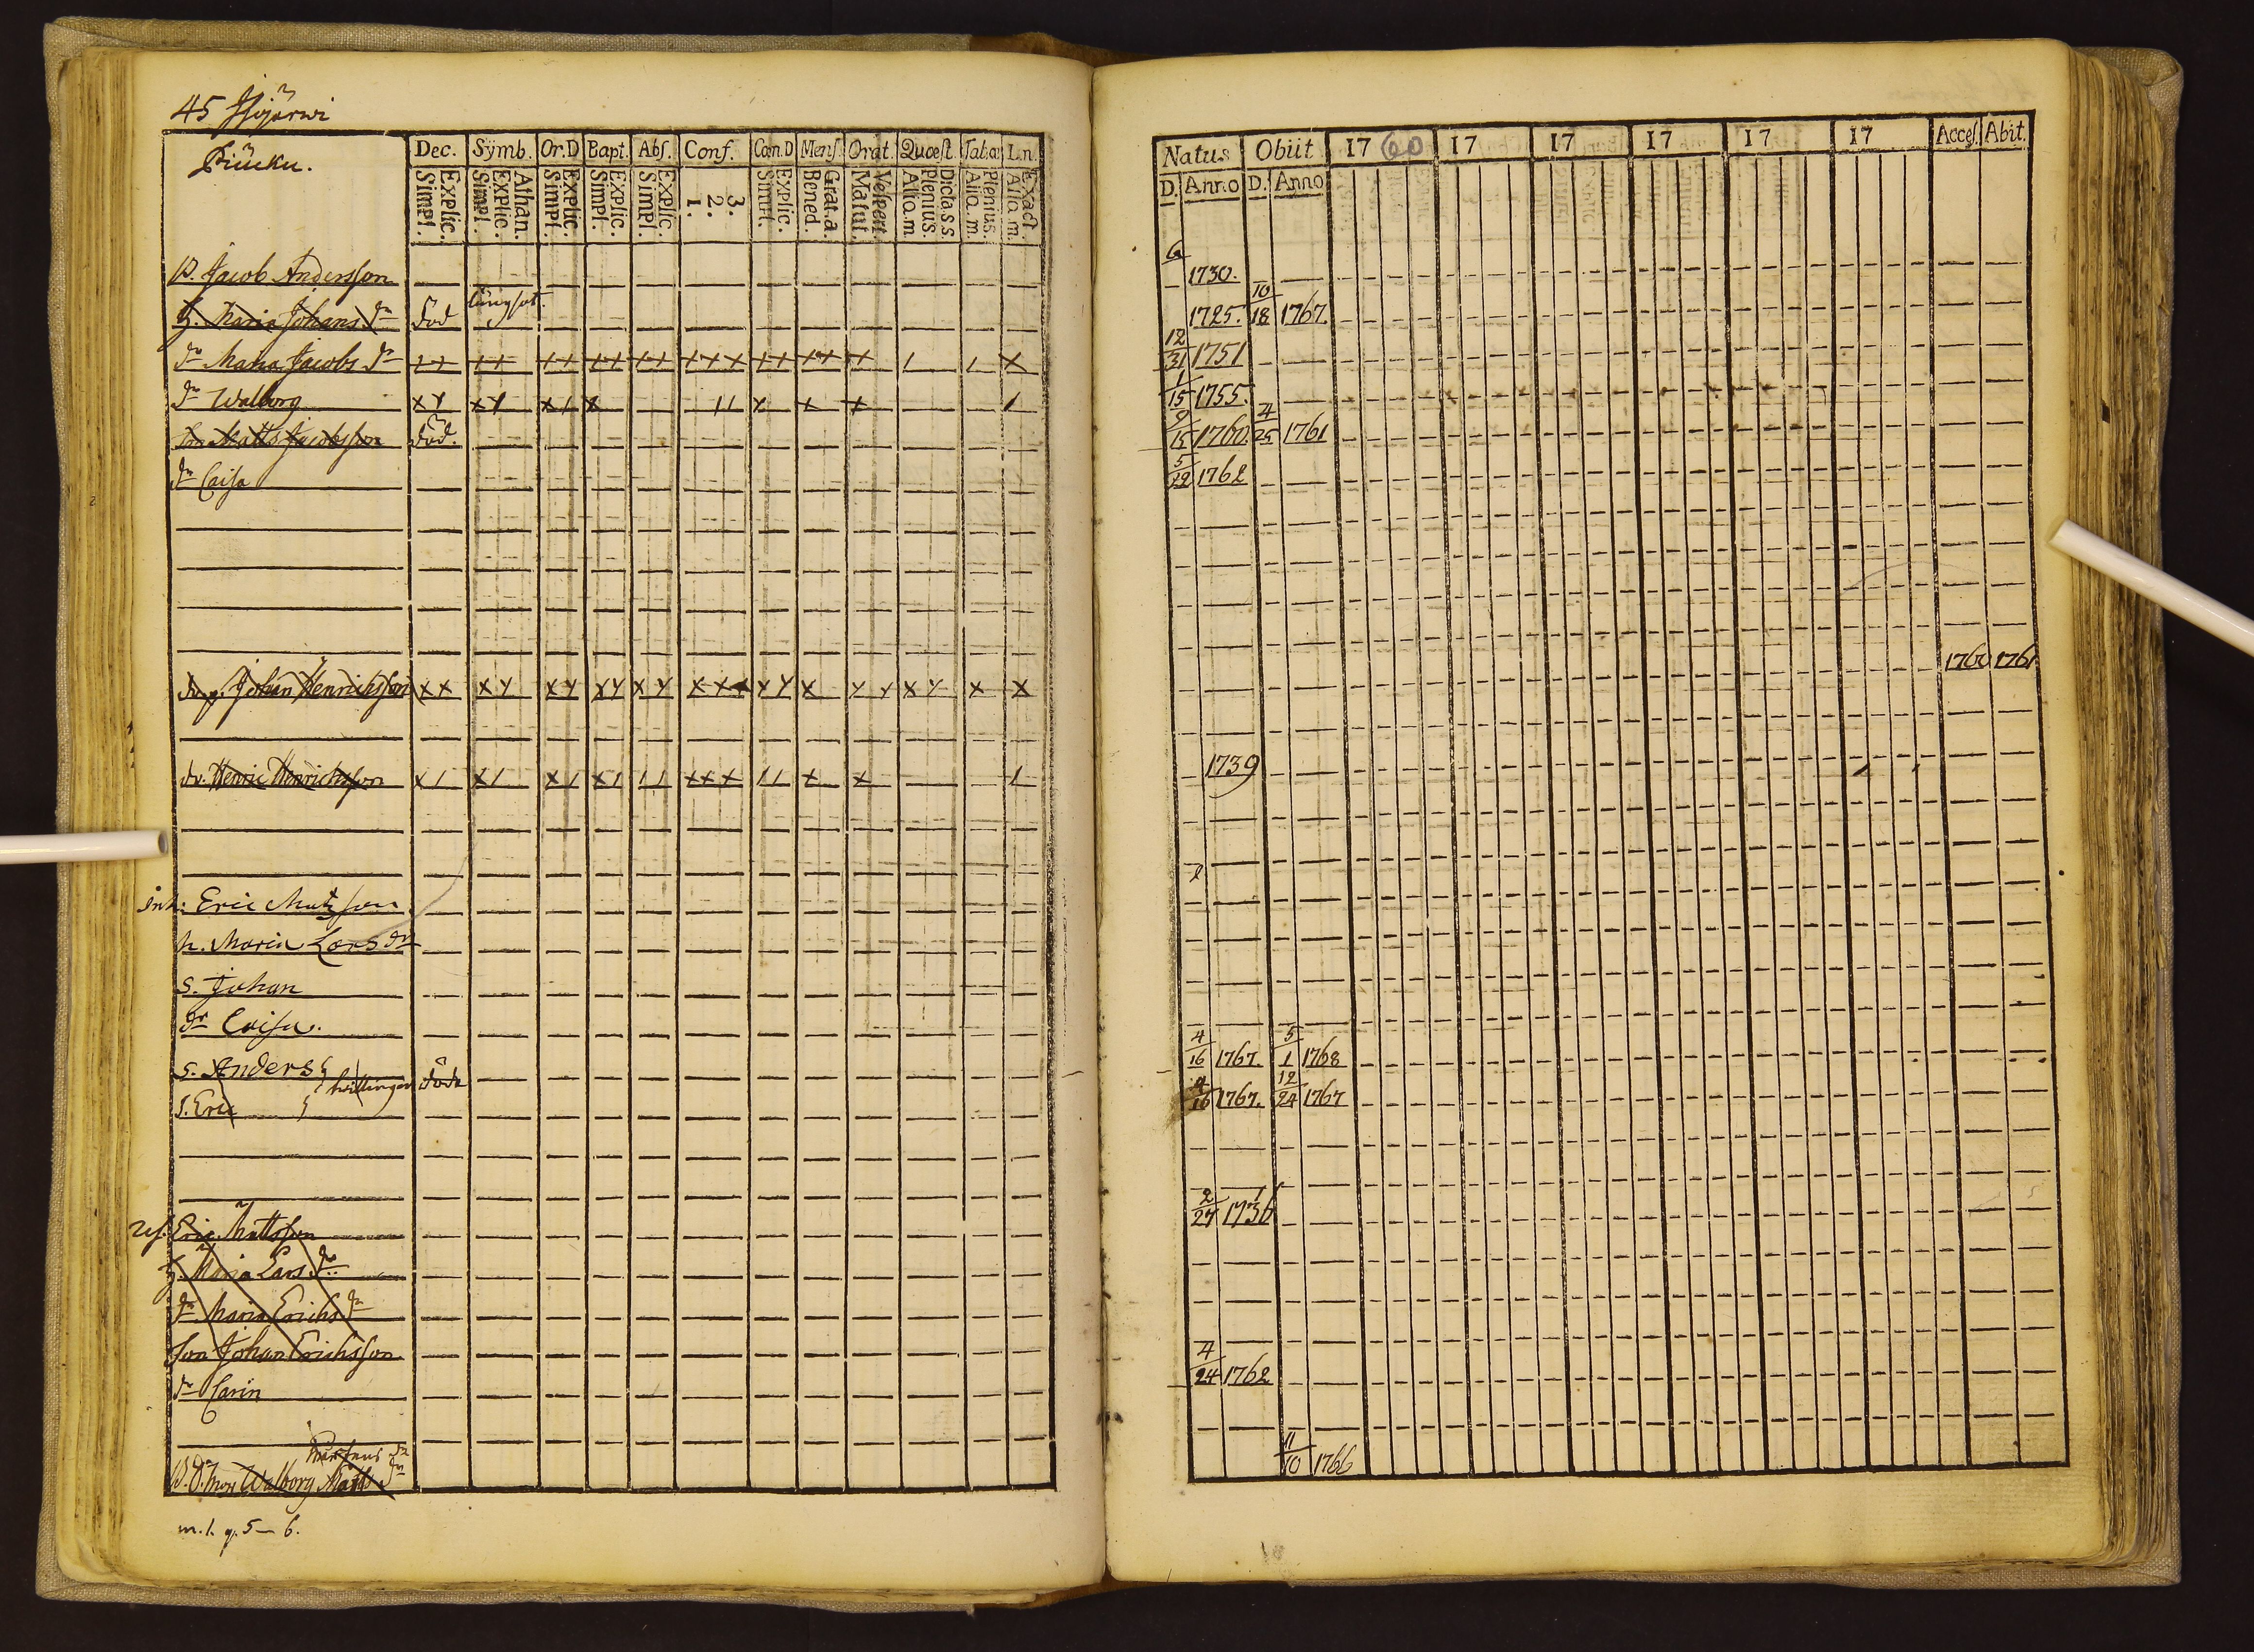 45
Dec. Symb. Or.D Bapt. Abs. Conf. Cœn.D Mens. Orat. Quoest. Tab.œ Lin.
Explic. Simpl. Athan. Explic. Simpl. Explic. Simpl. Explic. Simpl. Explic. Simpl. 3. 2. 1. Explic. Simpl. Grat.a. Bened. Vespert. Matut. Dicta s.s. Plenius. Alia.m. Plenius. Alia.m. Exact. Alia.m.
B. Jacob Andersson
H. Maria Johans dr död
dr Maria Jacobs dr
dr Walborg
Son Matts Jacobsson död.
dr Caisa
Johan Henrichsson
dr. Henric Henrichsson
inh: Eric Matzson
h. Maria Lars dr
S. Johan
dr Caisa.
S. Anders
döda
S. Eric
Eric Mattsson
H. Maria Lars dr
dr Maria Erichs dr
Son Johan Erichsson
dr Carin
Walborg Matts dr
m. l. g. 5 – 6.
Natus Obiit 17 60 17 17 17 17 17 Acces. Abit.
D. Anno D. Anno
1730.
1725. 10/18 1767.
12/31 1751
1/15 1755.
9/15 1760. 4/25 1761
5/22 1762
1760 1761
1739
4/16 1767. 5/1 1768
4/16 1767. 12/24 1767
2/27 1736
4/24 1762
11/10 1766